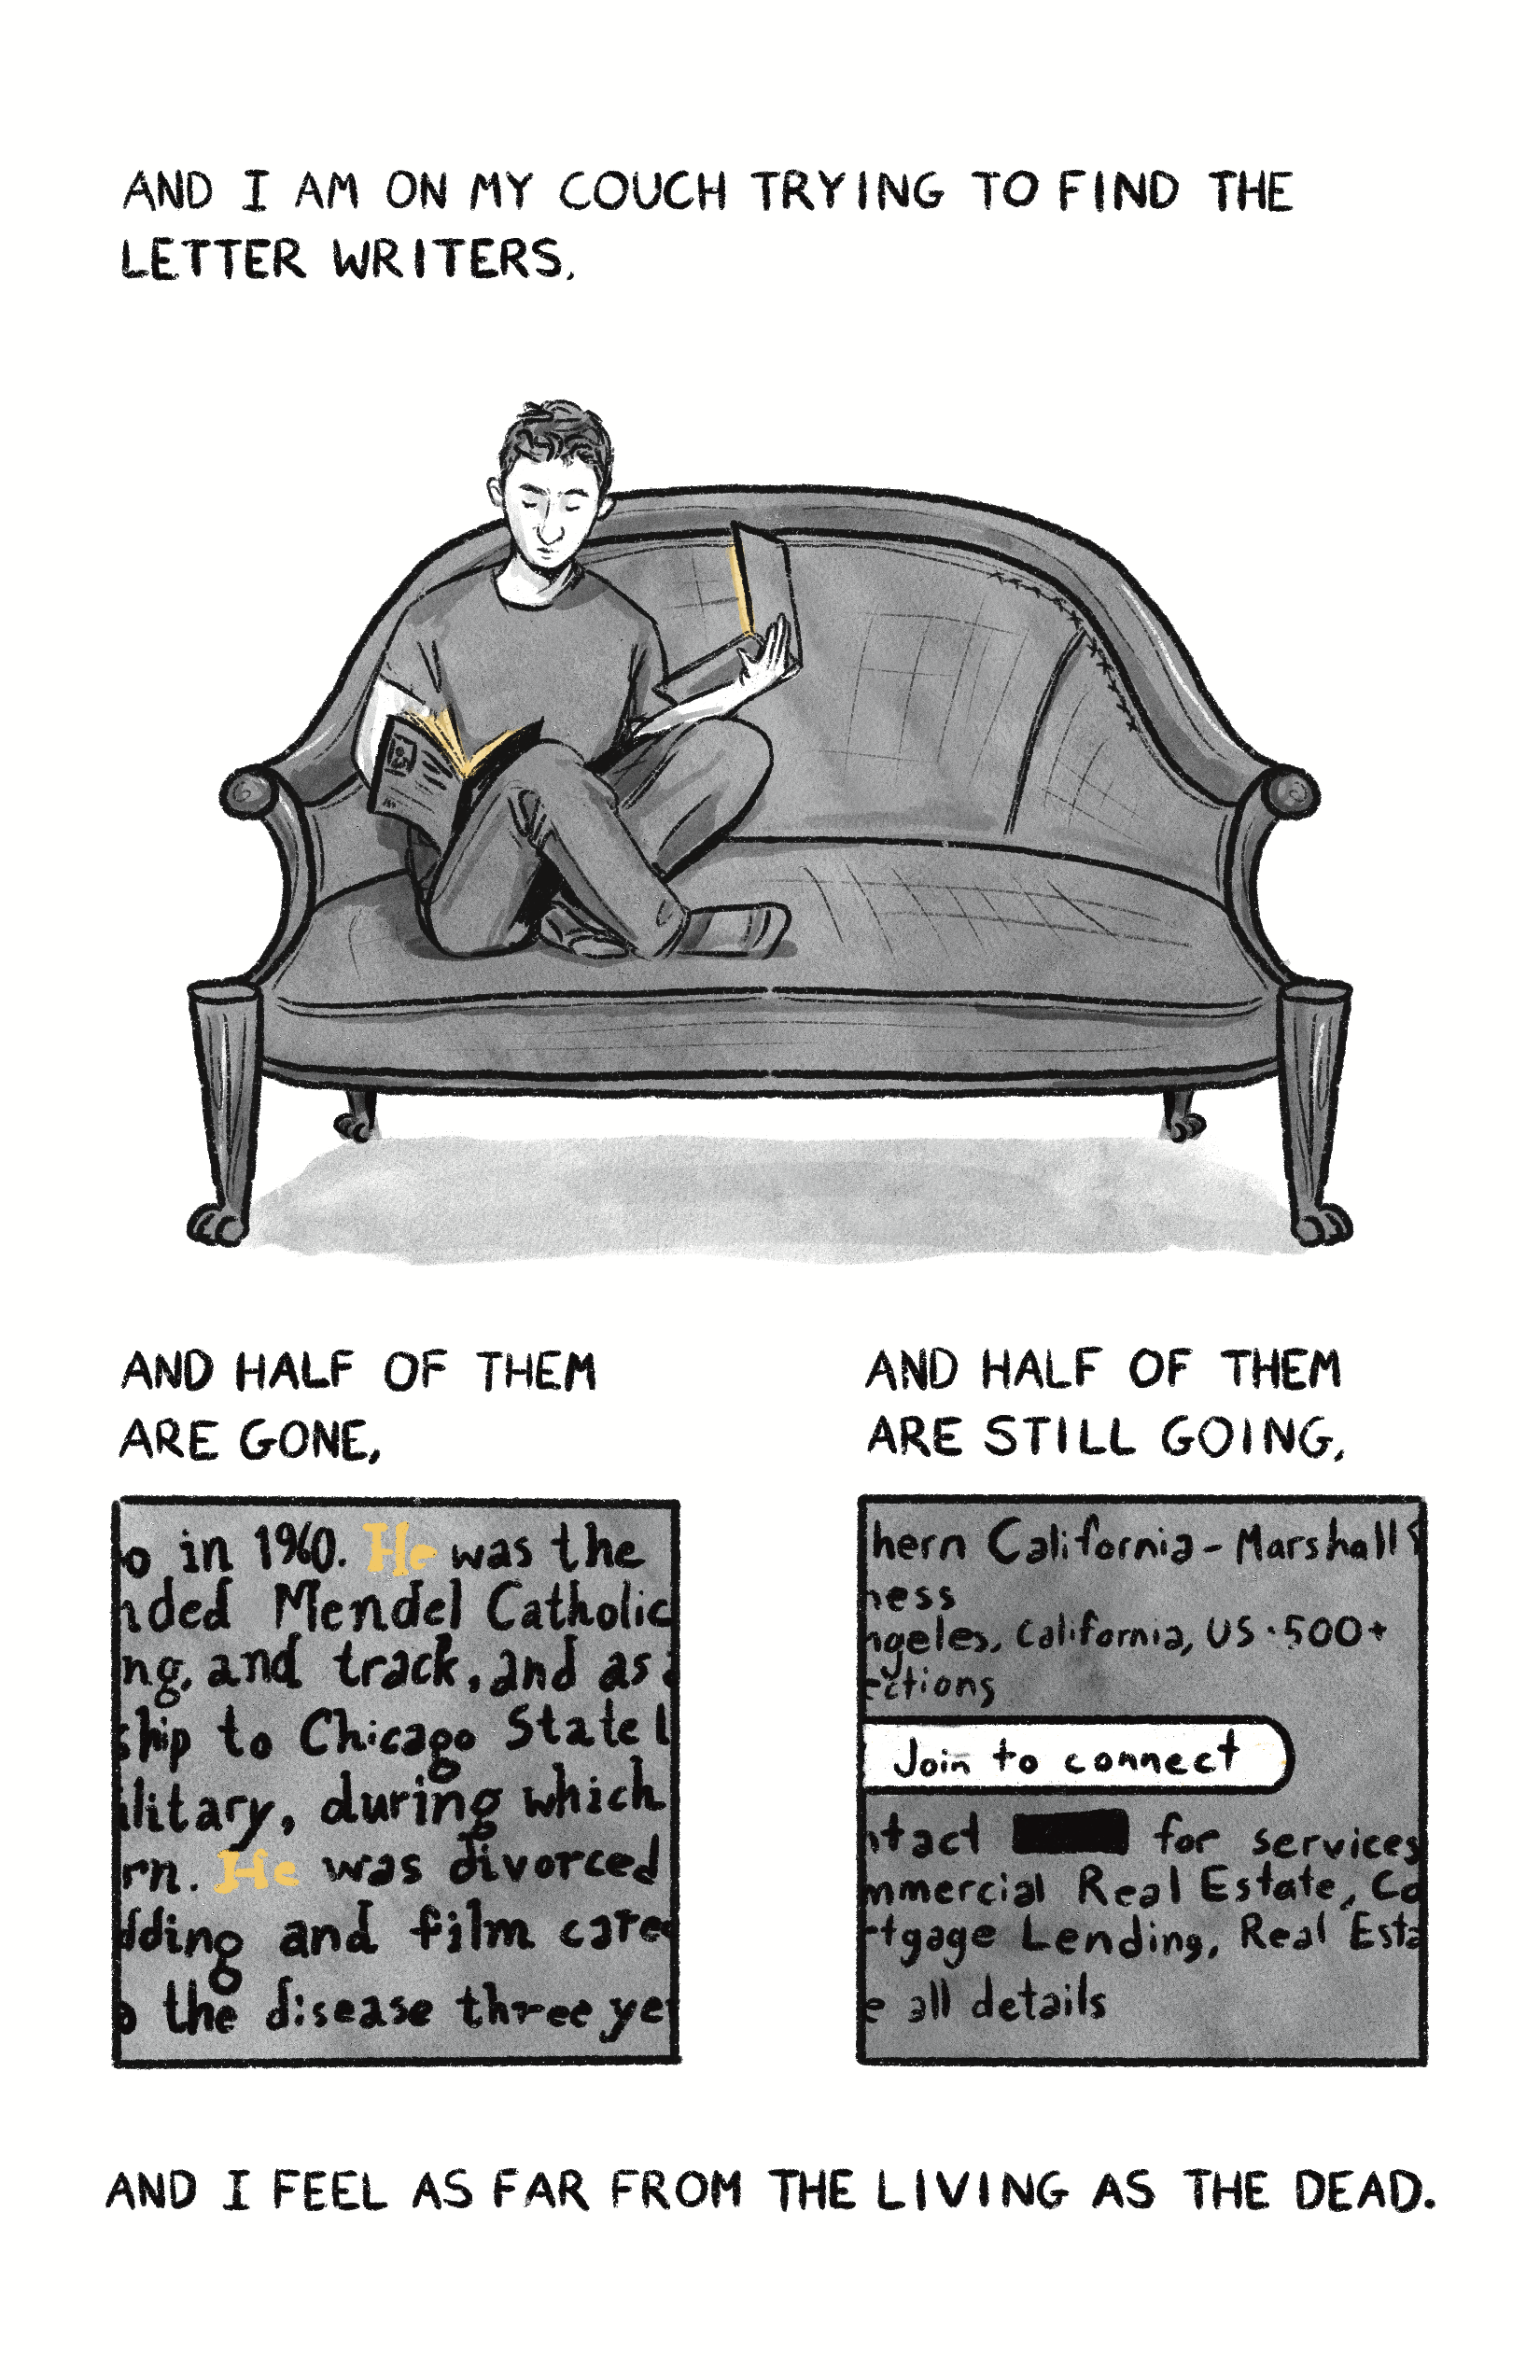 AND I AM ON MY COUCH TRYING TO FIND THE
LETTER WRITERS,
AND HALF OF THEM
ARE GONE,
o in 1960. He was the
nded Mendel Catholic
ng, and track, and as a
ship to Chicago State
ilitary, during which
rn. He was divorced
dding and film caree
o the disease three ye
AND HALF OF THEM
ARE STILL GOING,
hern California - Marshall
ness
ngeles, California, US · 500+
ections
Join to connect
ntact for services
mmercial Real Estate, Co
rtgage Lending, Real Esta
e all details
AND I FEEL AS FAR FROM THE LIVING AS THE DEAD.